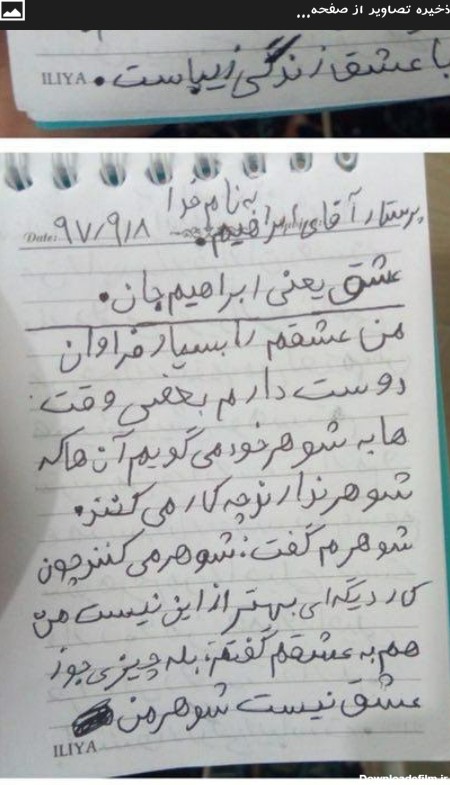 ذخیره تصاویر از صفحه...
با عشق زندگی زیباست.
ILIYA
به نام خدا
پرستار آقای ابراهیم.
Date: ۹۷/۹/۸
عشق یعنی ابراهیم جان.
من عشقم را بسیار فراوان
دوست دارم بعضی وقت
ها به شوهر خود می گویم آن ها که
شوهر ندارند چه کار می کنند.
شوهرم گفت: شوهر می کنند چون
کار دیگه ای بهتر از این نیست من
هم به عشقم گفتم: بله چیزی جوز
عشق نیست شوهر من
ILIYA